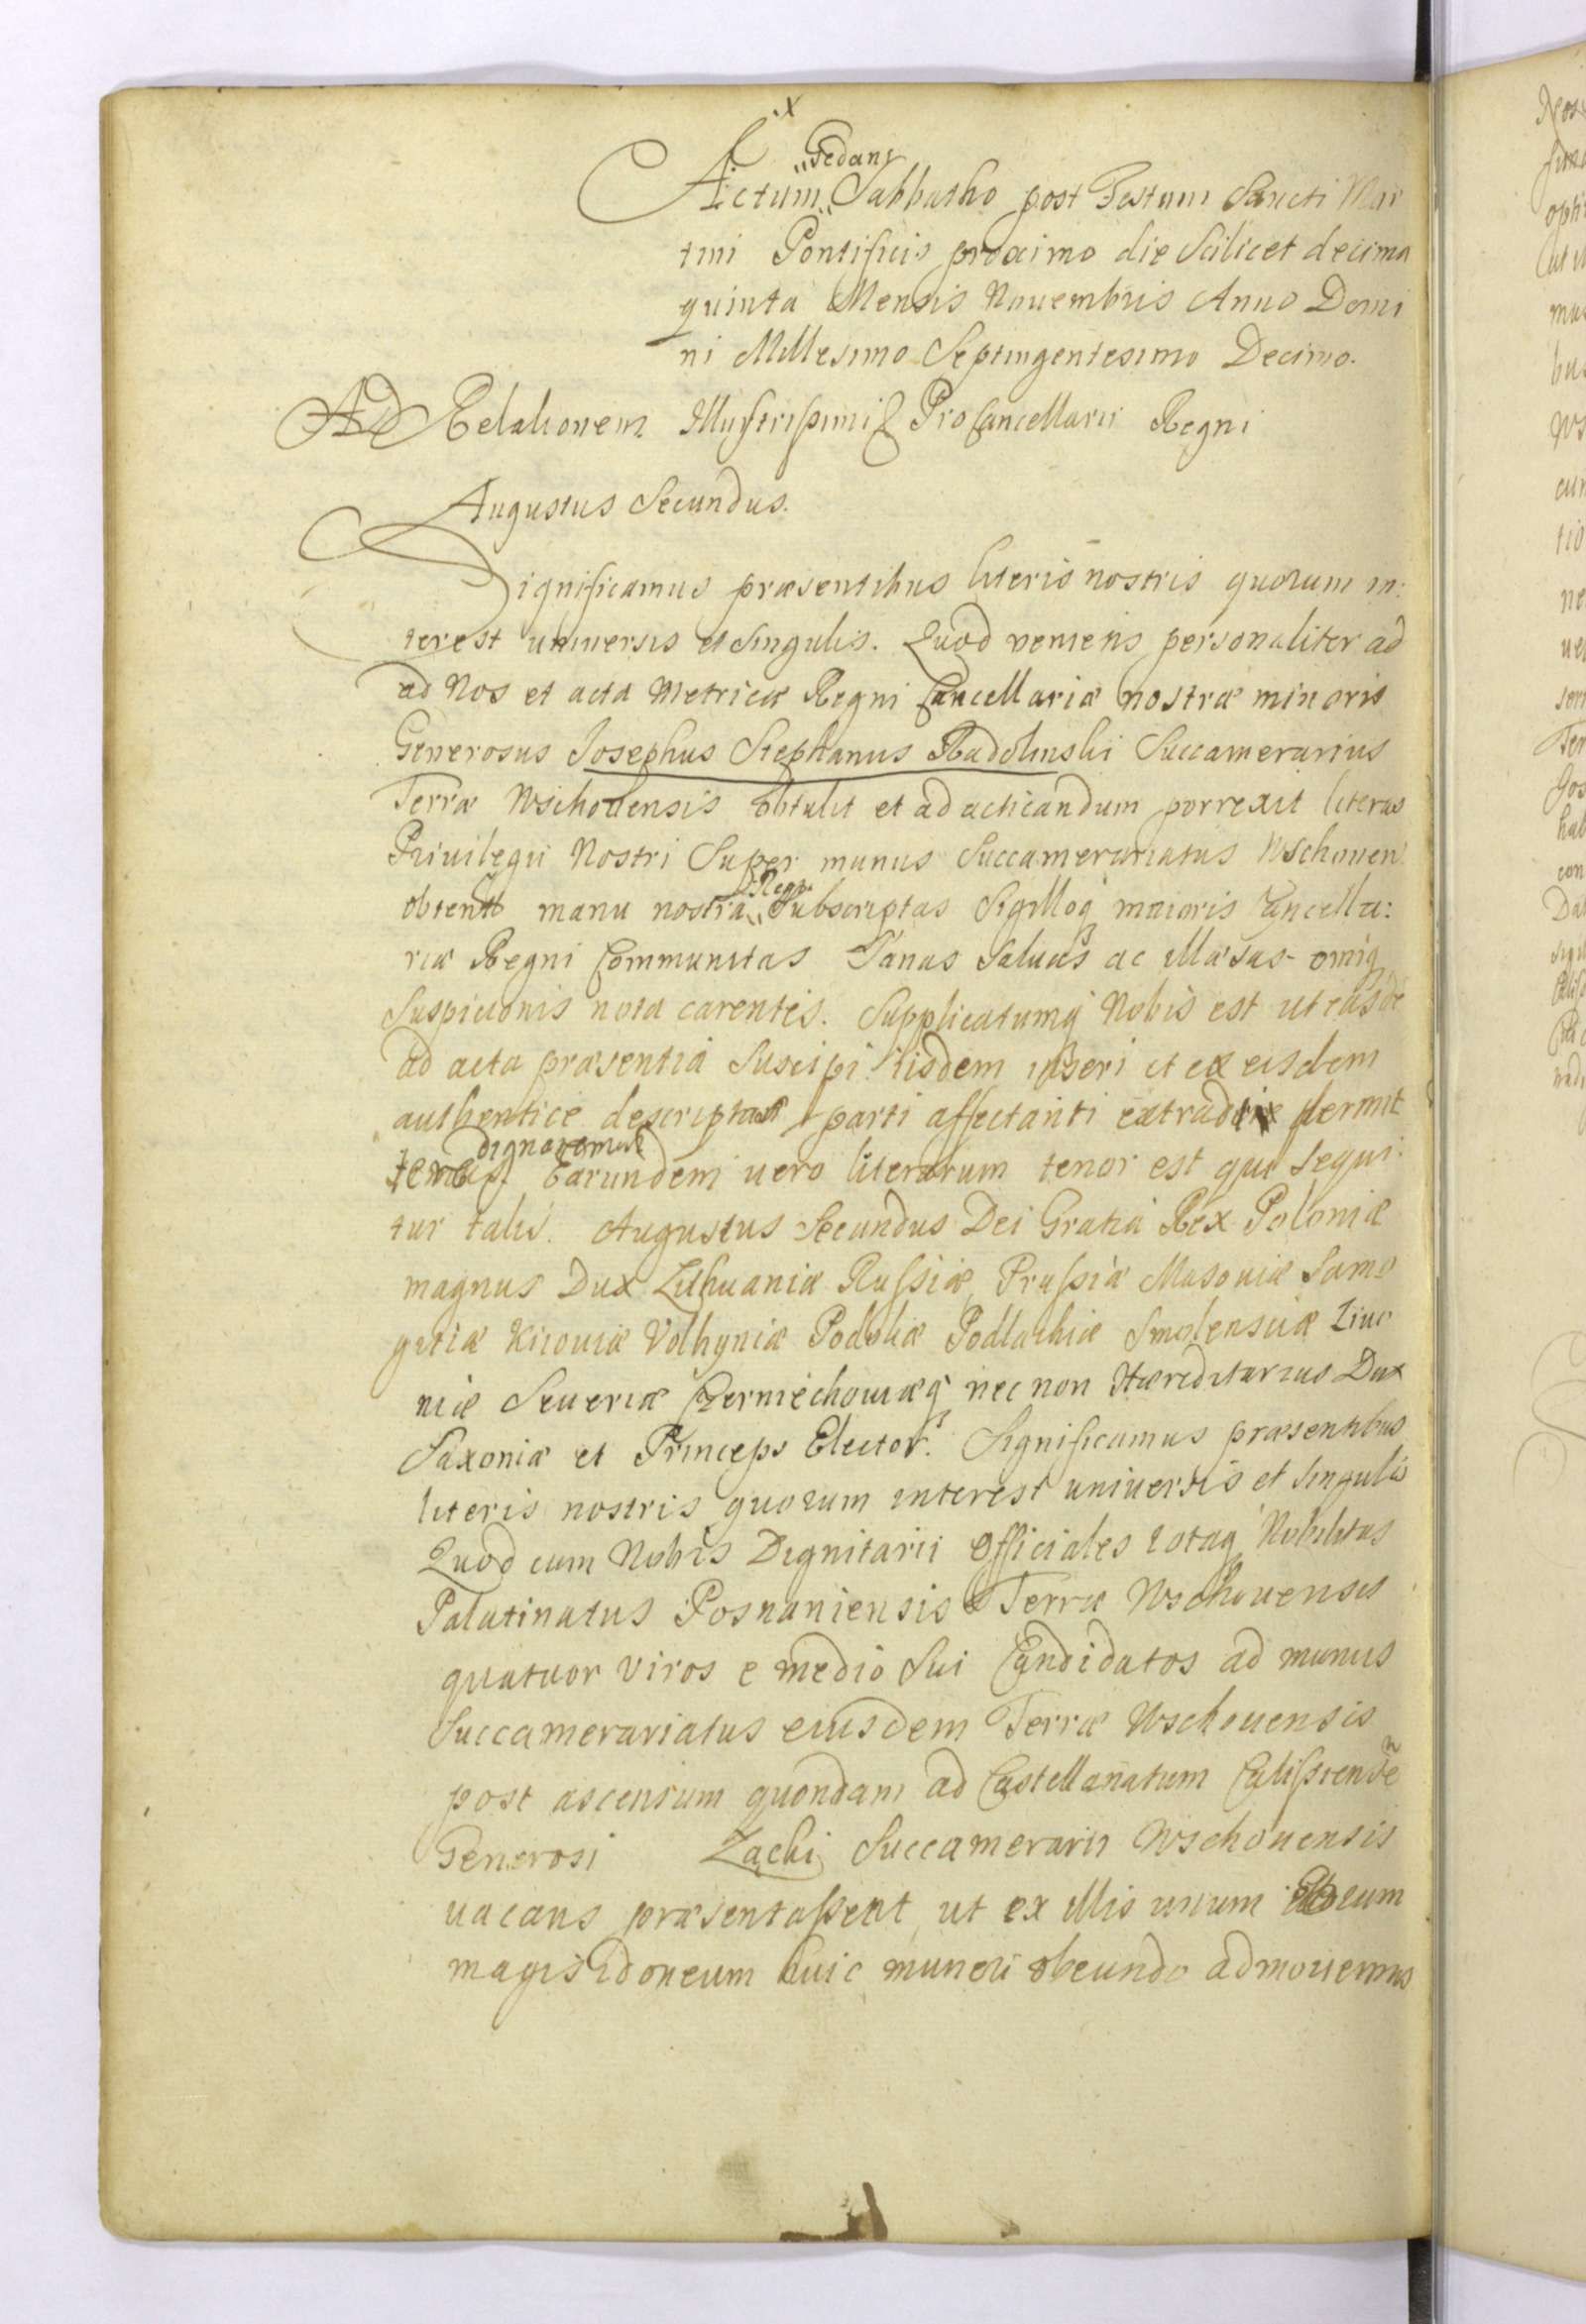 x
Gedani
Actum Sabbatho post Festum Sancti Mar
tini Pontificis proximo die Scilicet decima
quinta Mensis Nouembris Anno Domi
ni Millesimo Septingentesimo Decimo.
Ad Relationem Illustrissimi Procancellarii Regni
Augustus Secundus.
Significamus præsentibus literis nostris quorum in:
terest uniuersis et Singulis. Quod veniens personaliter ad
ad Nos et acta Metricæ Regni Cancellariæ nostræ minoris
Generosus Josephus Stephanus Radolinski Succamerarius
Terræ Wschouensis obtulit et ad acticandum porrexit literas
Priuilegii Nostri Super munus Succamerariatus Wschouen
obtentas manu nostra Regia Subscriptas Sigilloq maioris Cancella:
riæ Regni Communitas Sanas Saluas ac illæsas omiq
Suspicionis nota carentes. Supplicatumq Nobis est ut easdē
ad acta præsentia Suscipi iisdem inseri et ex eisdem
authentice descriptas parti affectanti extradi permit
dignaremur
Earundem uero literarum tenor est qui sequi:
tur talis. Augustus Secundus Dei Gratia Rex Poloniæ
magnus Dux Lithuaniæ Russiæ, Prussiæ Masouiæ Samo
gitiæ Kiiouiæ Volhyniæ Podoliæ Podlachiæ Smolensciæ Liuo
niæ Seueriæ Czerniechouiæq nec non Hæreditarius Dux
Saxoniæ et Princeps Elector. Significamus præsentibus
literis nostris quorum interest uniuersis et Singulis
Quod cum Nobis Dignitarii Officiales totaq Nobilitas
Palatinatus Posnaniensis Terræ Wschouensis
quatuor viros e medio Sui Candidatos ad munus
Succamerariatus eiusdem Terræ Wschouensis
post ascensum quondam ad Castellanatum Calissiensē
Generosi Zacki Succamerarii Wschouensis
uacans præsentassent ut ex illis unum eum
magis idoneum huic muneri obeundo admoueremus